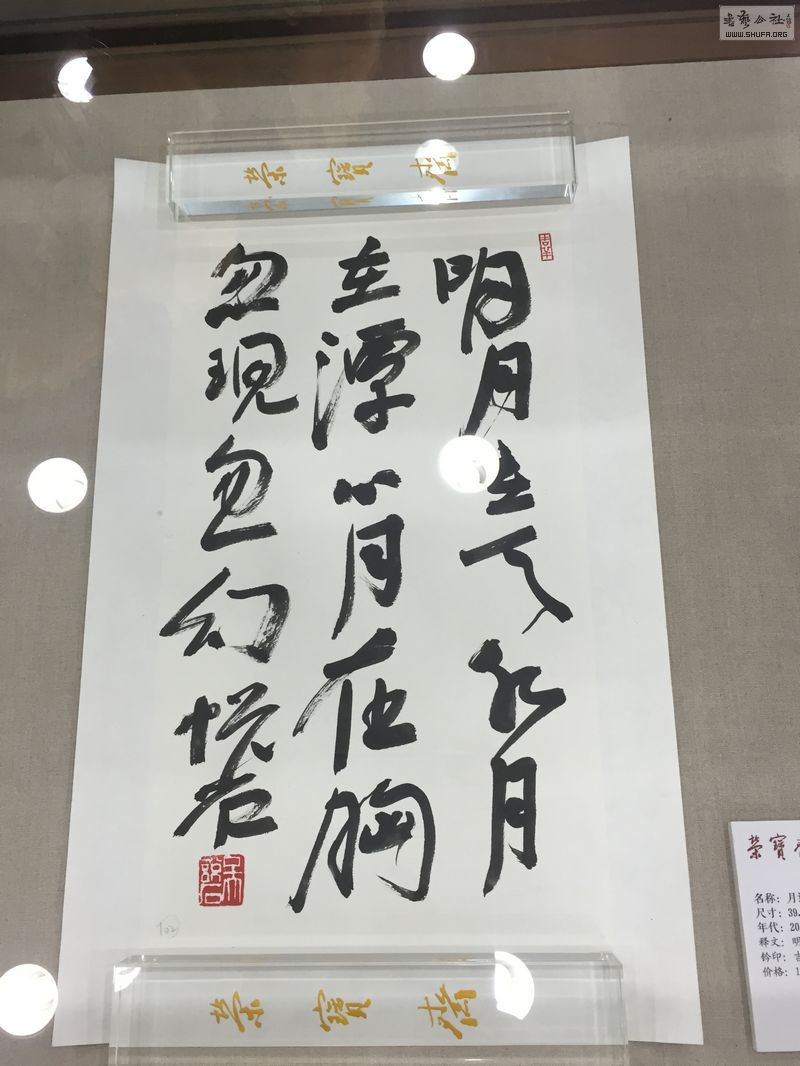 書藝公社
WWW.SHUFA.ORG
榮寶齋
明月在天水月
在潭心月在胸
忽現忽幻
榮寶齋
榮寶
名称：月
尺寸：39.
年代：20
释文：明
钤印：吉
价格：1